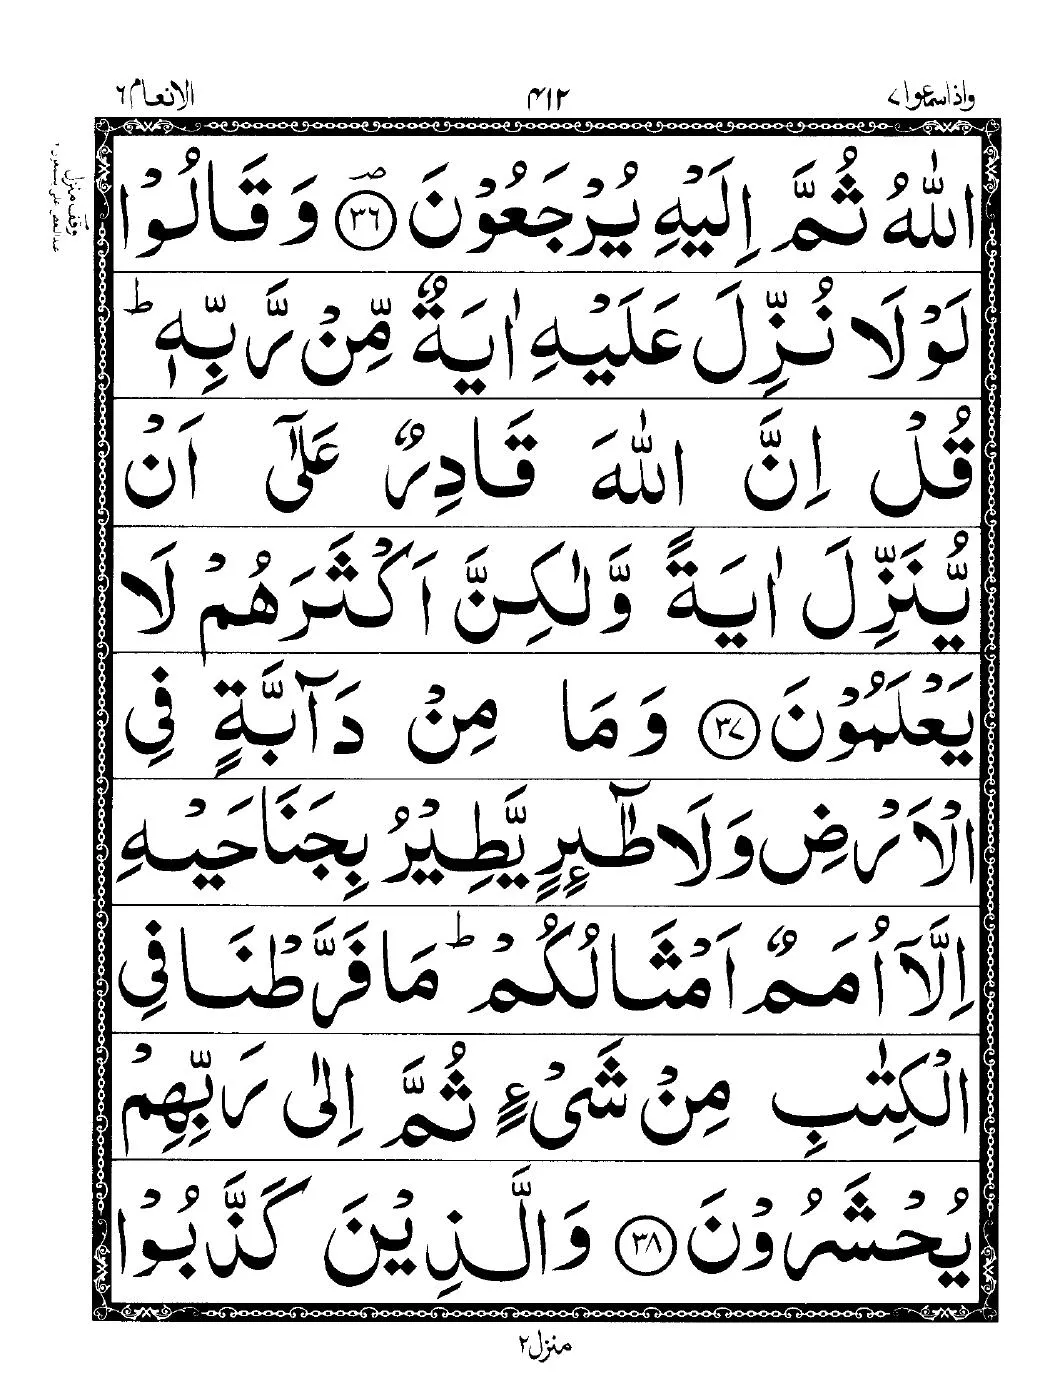 واذاسمعوا۷
۴۱۲
الانعام۶
وقف منزل
اللّٰهُ ثُمَّ اِلَيْهِ يُرْجَعُوْنَ ﴿۳۶﴾ ؔ وَ قَالُوْا
لَوْلَا نُزِّلَ عَلَيْهِ اٰيَةٌ مِّنْ رَّبِّهٖ ؕ
قُلْ اِنَّ اللّٰهَ قَادِرٌ عَلٰٓى اَنْ
يُّنَزِّلَ اٰيَةً وَّلٰكِنَّ اَكْثَرَهُمْ لَا
يَعْلَمُوْنَ ﴿۳۷﴾ وَ مَا مِنْ دَآبَّةٍ فِي
الْاَرْضِ وَلَا طٰٓئِرٍ يَّطِيْرُ بِجَنَاحَيْهِ
اِلَّاۤ اُمَمٌ اَمْثَالُكُمْ ؕ مَا فَرَّطْنَا فِي
الْكِتٰبِ مِنْ شَيْءٍ ثُمَّ اِلٰى رَبِّهِمْ
يُحْشَرُوْنَ ﴿۳۸﴾ وَالَّذِيْنَ كَذَّبُوْا
منزل۲